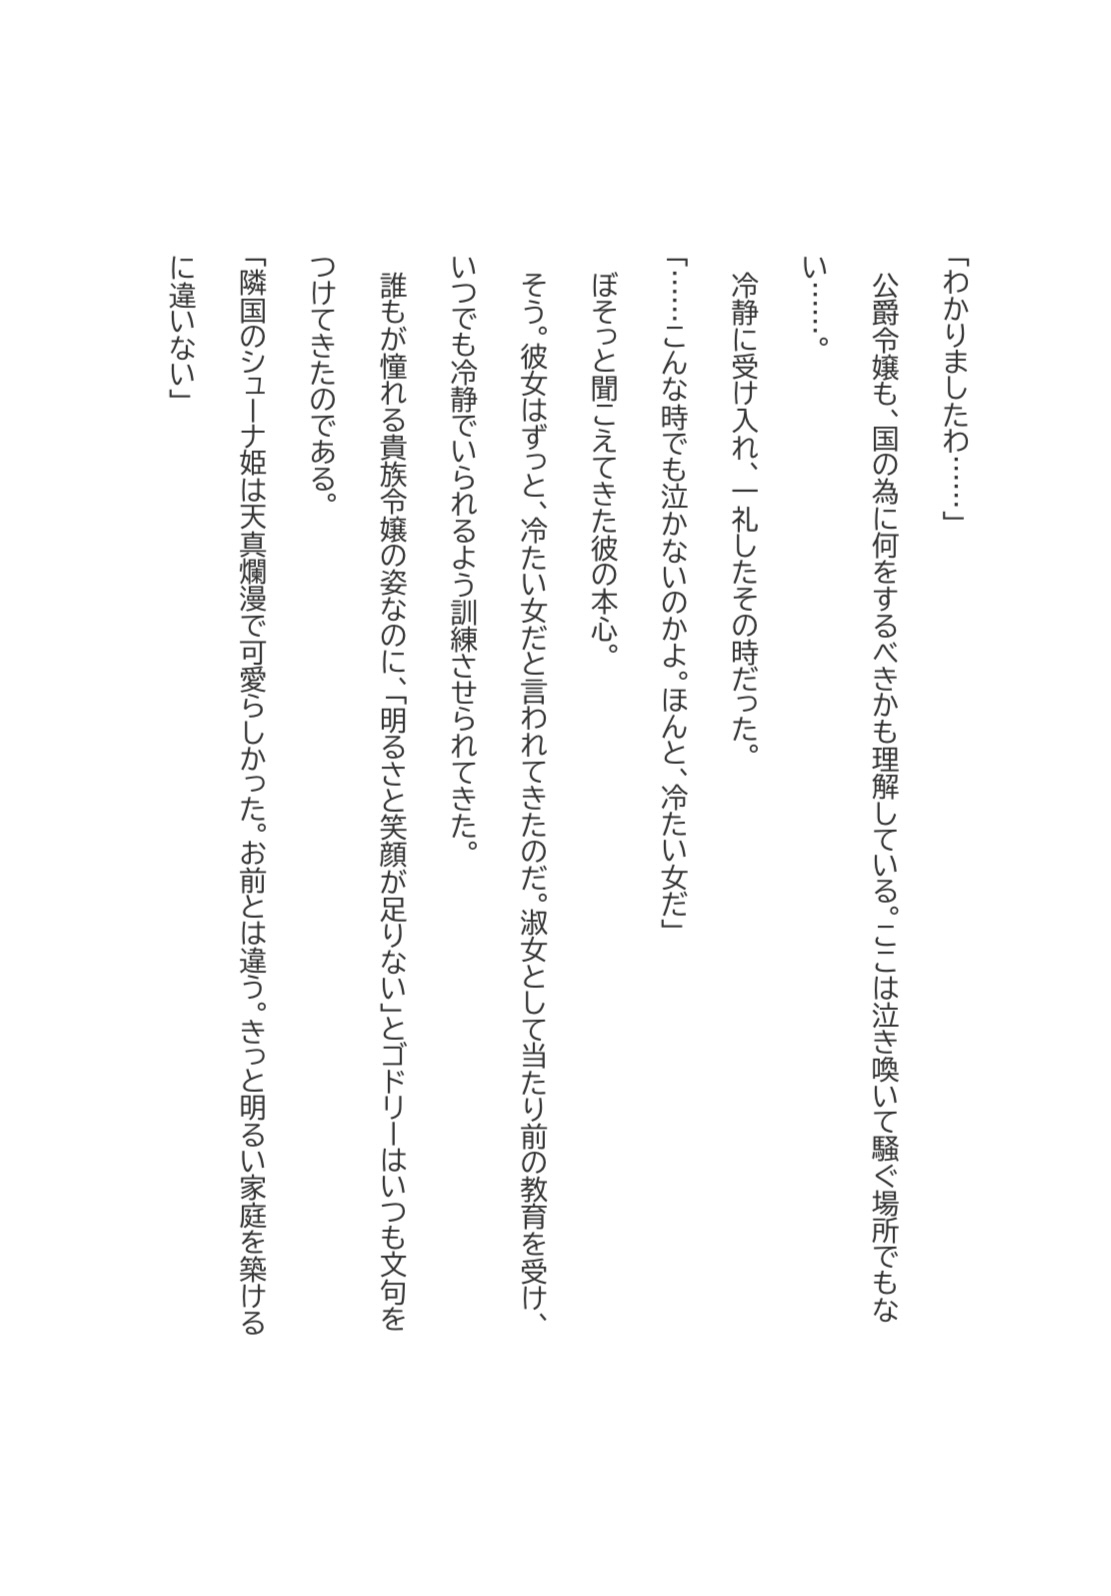 「わかりましたわ……」
公爵令嬢も、国の為に何をするべきかも理解している。ここは泣き喚いて騒ぐ場所でもな
い……。
冷静に受け入れ、一礼したその時だった。
「……こんな時でも泣かないのかよ。ほんと、冷たい女だ」
ぼそっと聞こえてきた彼の本心。
そう。彼女はずっと、冷たい女だと言われてきたのだ。淑女として当たり前の教育を受け、
いつでも冷静でいられるよう訓練させられてきた。
誰もが憧れる貴族令嬢の姿なのに、「明るさと笑顔が足りない」とゴドリーはいつも文句を
つけてきたのである。
「隣国のシューナ姫は天真爛漫で可愛らしかった。お前とは違う。きっと明るい家庭を築ける
に違いない」